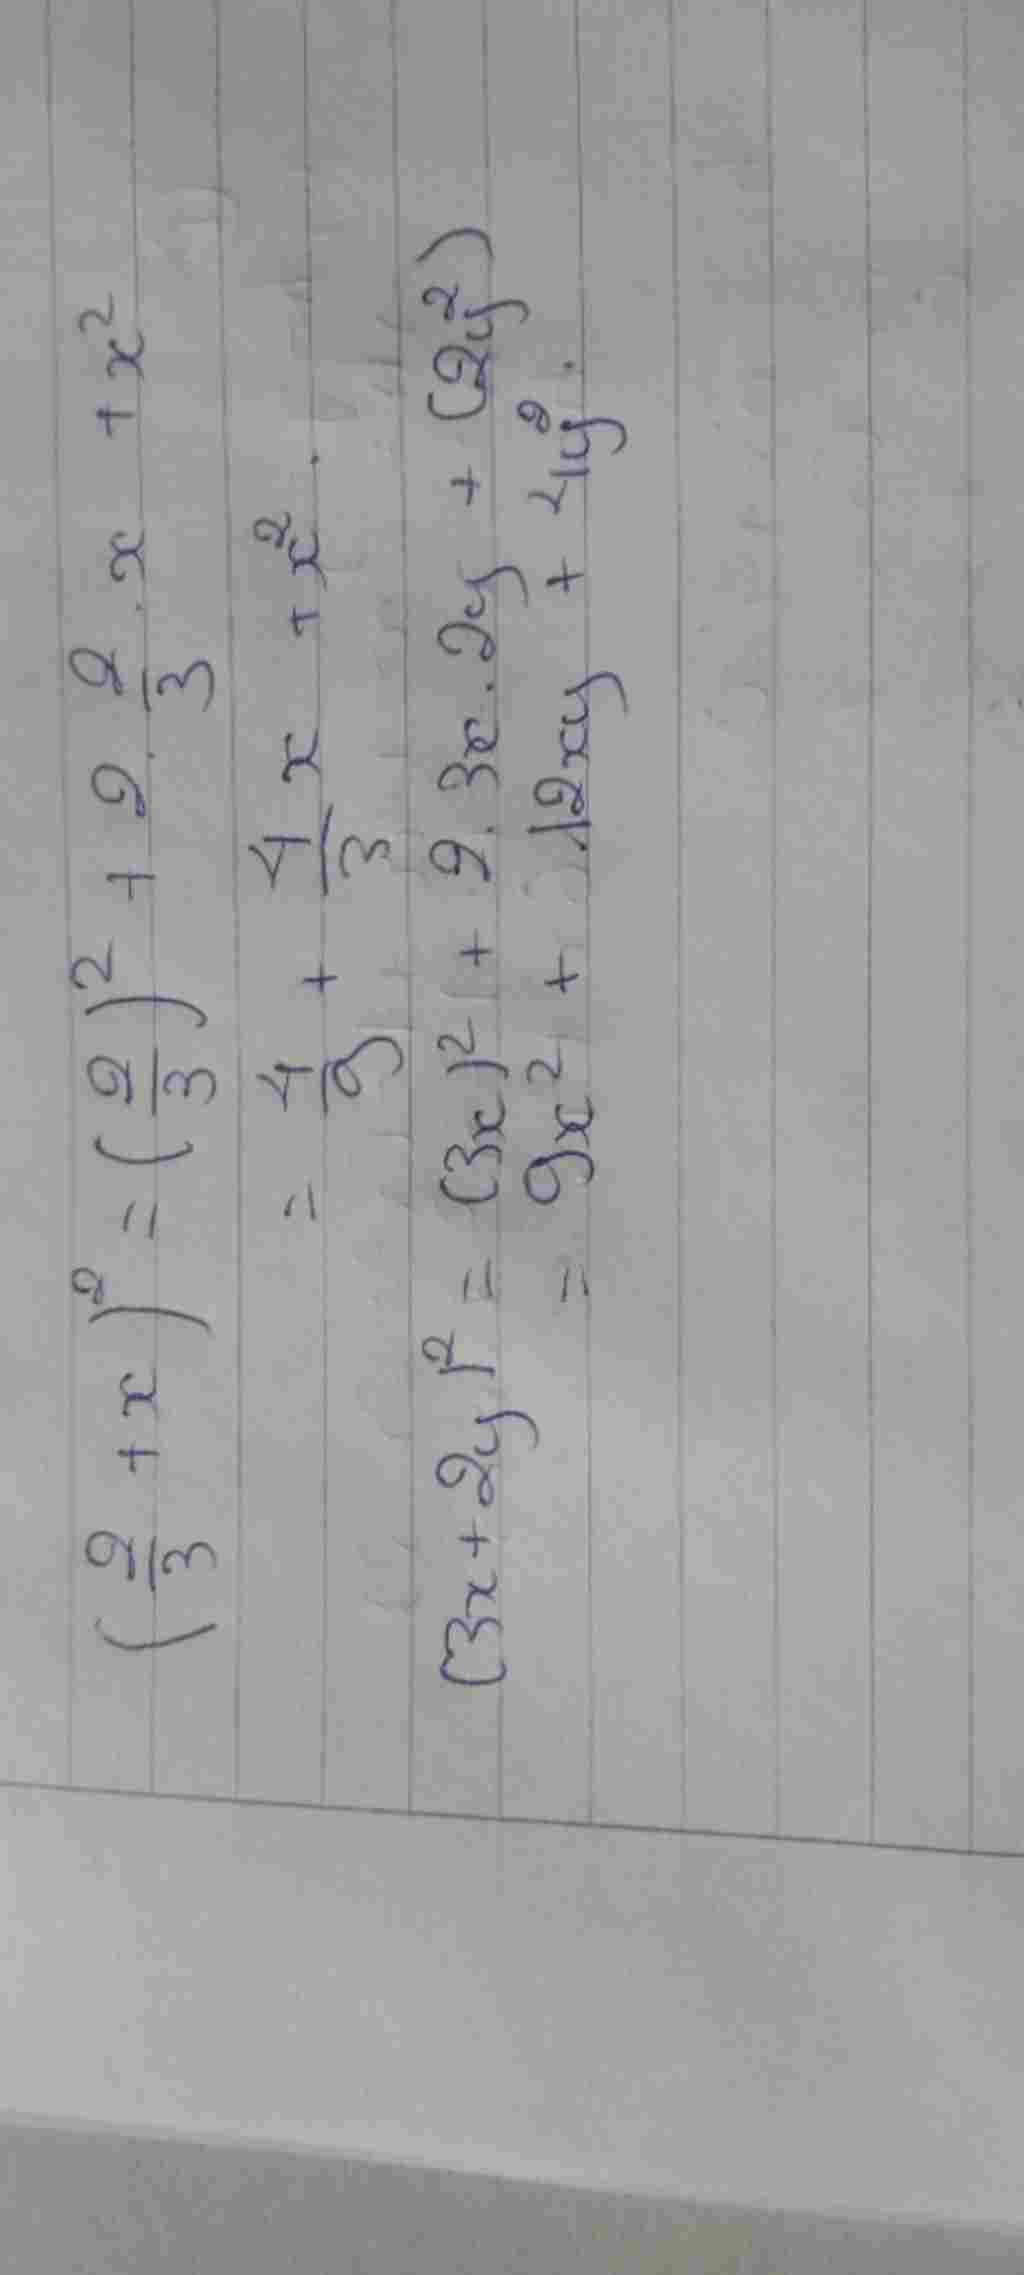 (2/3 + x)² = (2/3)² + 2 . 2/3 . x + x²
= 4/9 + 4/3 x + x² .
(3x + 2y)² = (3x)² + 2 . 3x . 2y + (2y²)
= 9x² + 12xy + 4y² .